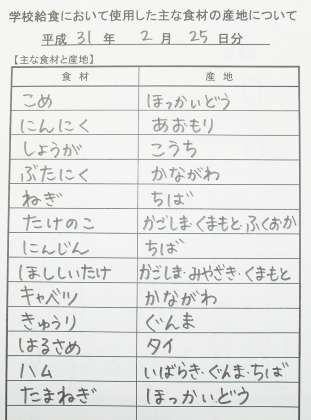 学校給食において使用した主な食材の産地について
平成 31 年 2 月 25 日分
【主な食材と産地】
食材 産地
こめ ほっかいどう
にんにく あおもり
しょうが こうち
ぶたにく かながわ
ねぎ ちば
たけのこ かごしま・くまもと・ふくおか
にんじん ちば
ほししいたけ かごしま・みやざき・くまもと
キャベツ かながわ
きゅうり ぐんま
はるさめ タイ
ハム いばらき・ぐんま・ちば
たまねぎ ほっかいどう